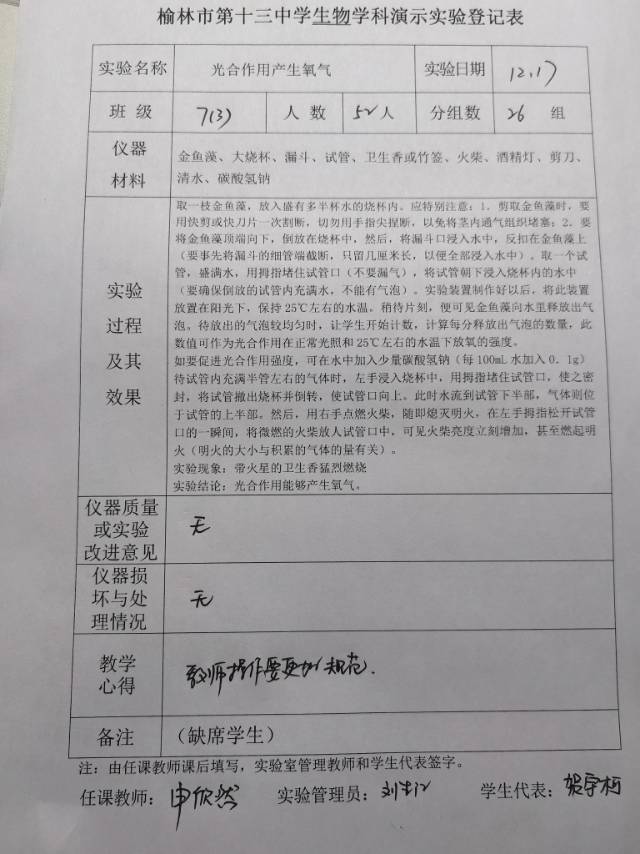 榆林市第十三中学生物学科演示实验登记表
实验名称 光合作用产生氧气 实验日期 12.17
班 级 7(3) 人 数 52人 分组数 26 组
仪器
材料
金鱼藻、大烧杯、漏斗、试管、卫生香或竹签、火柴、酒精灯、剪刀、
清水、碳酸氢钠
实验
过程
及其
效果
取一枝金鱼藻，放入盛有多半杯水的烧杯内。应特别注意：1．剪取金鱼藻时，要
用快剪或快刀片一次割断，切勿用手指尖捏断，以免将茎内通气组织堵塞；2．要
将金鱼藻顶端向下，倒放在烧杯中，然后，将漏斗口浸入水中，反扣在金鱼藻上
（要事先将漏斗的细管端截断，只留几厘米长，以便全部浸入水中）。取一个试
管，盛满水，用拇指堵住试管口（不要漏气），将试管朝下浸入烧杯内的水中
（要确保倒放的试管内充满水，不能有气泡）。实验装置制作好以后，将此装置
放置在阳光下，保持25℃左右的水温。稍待片刻，便可见金鱼藻向水里释放出气
泡。待放出的气泡较均匀时，让学生开始计数，计算每分释放出气泡的数量，此
数值可作为光合作用在正常光照和25℃左右的水温下放氧的强度。
如要促进光合作用强度，可在水中加入少量碳酸氢钠（每100mL水加入0.1g）
待试管内充满半管左右的气体时，左手浸入烧杯中，用拇指堵住试管口，使之密
封，将试管撤出烧杯并倒转，使试管口向上。此时水流到试管下半部，气体则位
于试管的上半部。然后，用右手点燃火柴，随即熄灭明火，在左手拇指松开试管
口的一瞬间，将微燃的火柴放人试管口中，可见火柴亮度立刻增加，甚至燃起明
火（明火的大小与积累的气体的量有关）。
实验现象：带火星的卫生香猛烈燃烧
实验结论：光合作用能够产生氧气。
仪器质量
或实验
改进意见
无
仪器损
坏与处
理情况
无
教学
心得
教师操作要更加规范.
备注 （缺席学生）
注：由任课教师课后填写，实验室管理教师和学生代表签字。
任课教师：申欣然 实验管理员： 学生代表：贺宇柯